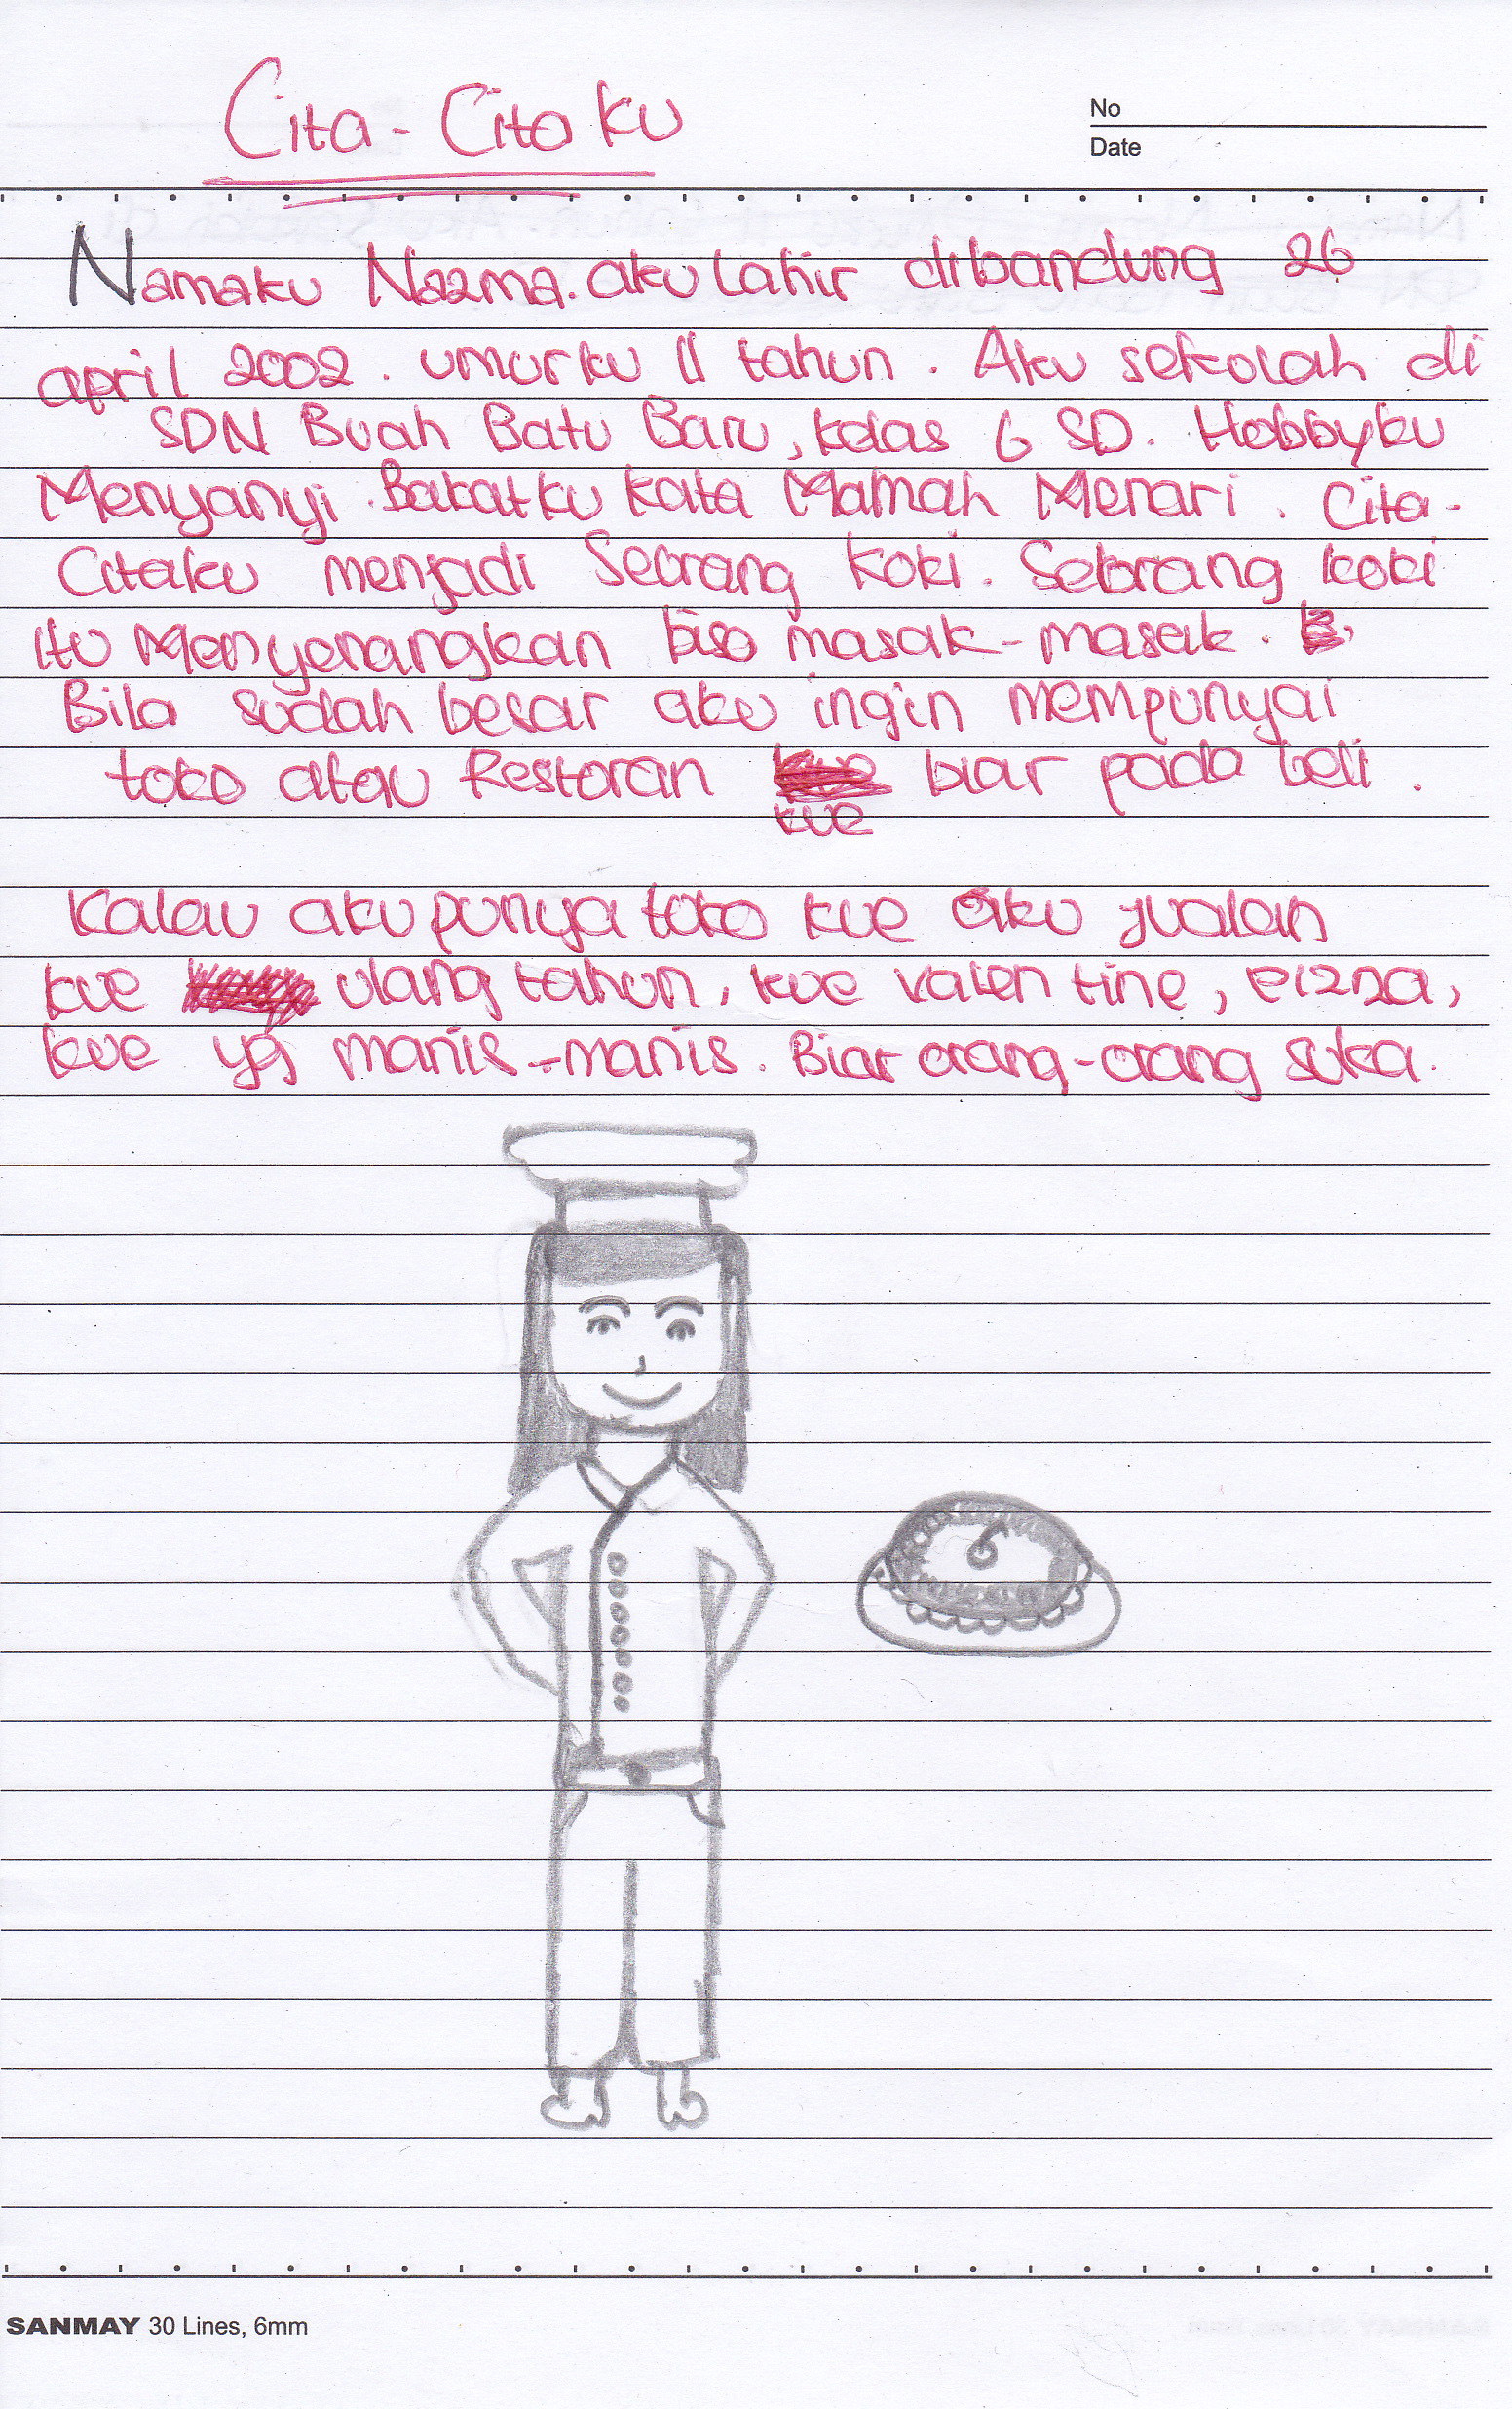 Cita-Citaku
No
Date
Namaku Nazma. aku Lahir dibandung 26
april 2002. umurku 11 tahun. Aku sekolah di
SDN Buah Batu Baru, kelas 6 SD. Hobbyku
Menyanyi. Bakatku kata Mamah Menari. Cita-
Citaku menjadi Seorang koki. Seorang koki
itu Menyenangkan bisa masak-masak.
Bila sudah besar aku ingin mempunyai
toko atau Restoran biar pada beli.
kue
Kalau aku punya toko kue aku jualan
kue ulang tahun, kue valentine, pizza,
kue yg manis-manis. Biar orang-orang suka.
SANMAY 30 Lines, 6mm